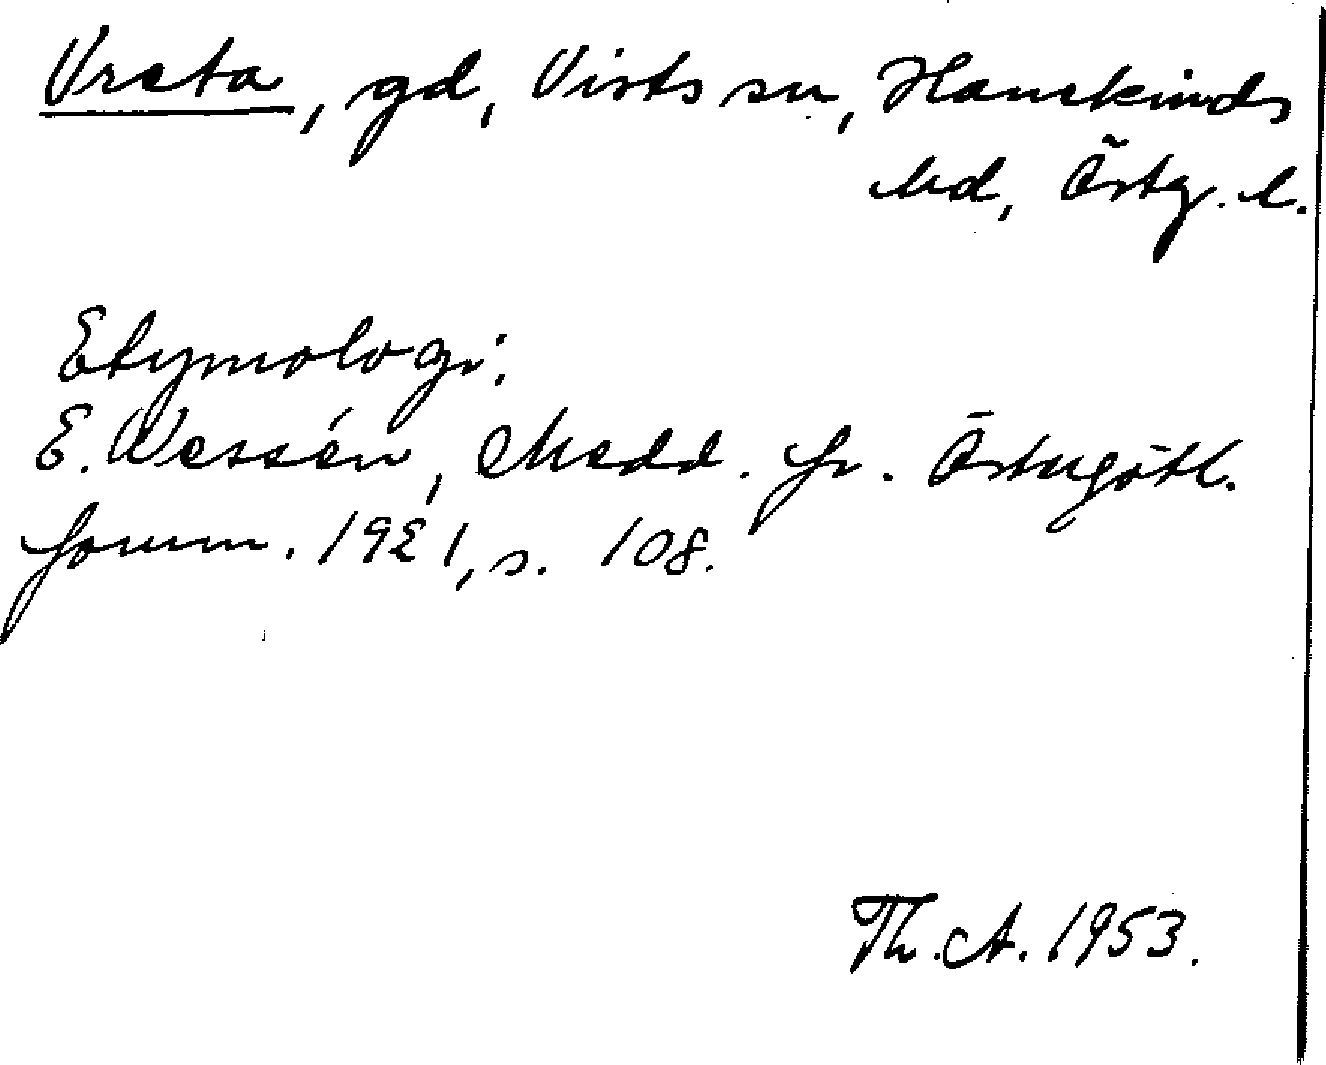 Vreta, gd, Vists sn, Hanekinds
hd, Östg. l.
Etymologi:
E. Wessén, Medd. fr. Östergötl.
fornm. 1921, s. 108.
Th. A. 1953.